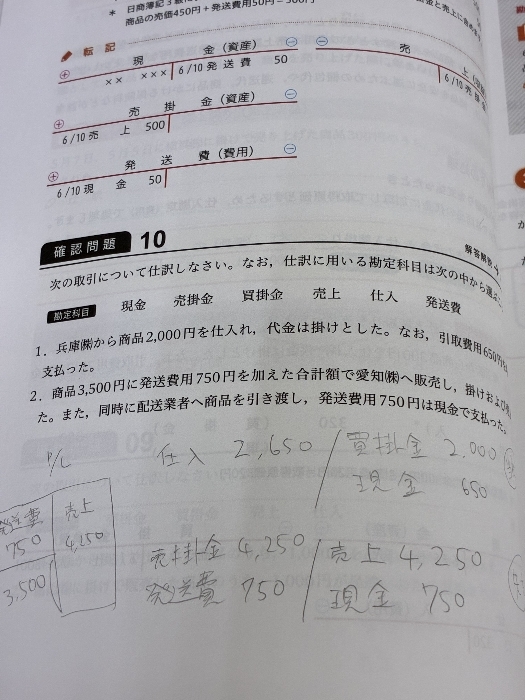 * 日商簿記3級
商品の売価450円+発送費用50円=500円
金と売上に含め
転記
⊕ 現 金(資産) ⊖
×× ××× 6/10 発送費 50
⊖ 売 上
6/10 売掛
⊕ 売 掛 金(資産) ⊖
6/10 売 上 500
⊕ 発 送 費(費用) ⊖
6/10 現 金 50
確認問題 10
解答解説
次の取引について仕訳しなさい。なお,仕訳に用いる勘定科目は次の中から選
勘定科目 現金 売掛金 買掛金 売上 仕入 発送費
1.兵庫㈱から商品2,000円を仕入れ,代金は掛けとした。なお,引取費用650円
支払った。
2.商品3,500円に発送費用750円を加えた合計額で愛知㈱へ販売し,掛け
た。また,同時に配送業者へ商品を引き渡し,発送費用750円は現金で支払った。
P/L 仕入 2,650 / 買掛金 2,000
現金 650
発送費 売上
750 4,250
3,500
売掛金 4,250 / 売上 4,250
発送費 750 現金 750